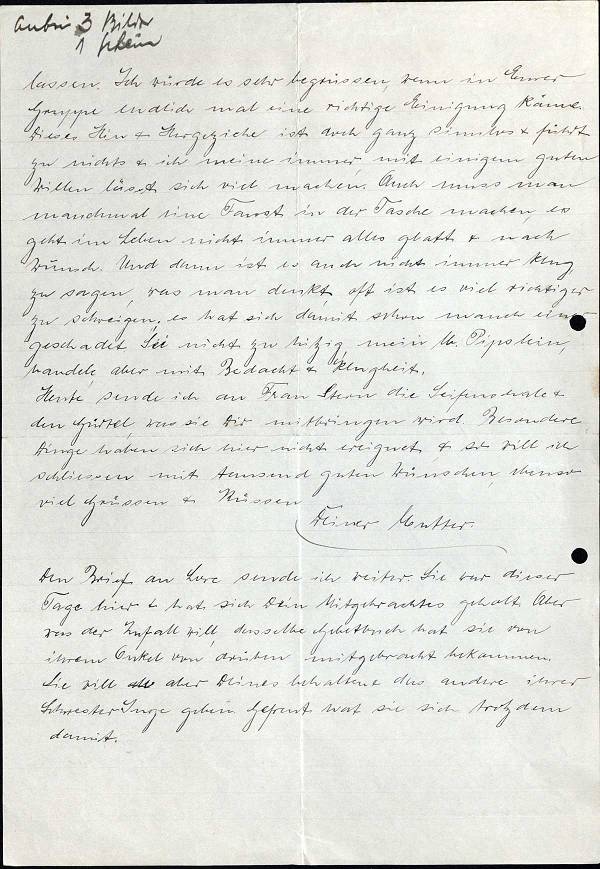 anbei 3 Bilder
1 Schein
lassen. Ich würde es sehr begrüssen, wenn in Eurer
Gruppe endlich mal eine richtige Einigung käme.
Dieses Hin & Hergeziehe ist doch ganz sinnlos & führt
zu nichts & ich meine immer, mit einigem guten
Willen lässt sich viel machen. Auch muss man
manchmal eine Faust in der Tasche machen es
geht im Leben nicht immer alles glatt & nach
Wunsch. Und dann ist es auch nicht immer klug,
zu sagen, was man denkt, oft ist es viel richtiger
zu schweigen; es hat sich damit schon manch einer
geschadet. Sei nicht zu hitzig mein lb. Pipslein,
handele aber mit Bedacht & Klugheit.
Heute sende ich an Frau Stern die Seifenschale &
den Gürtel, was sie Dir mitbringen wird. Besondere
Dinge haben sich hier nicht ereignet & so will ich
schliessen mit tausend guten Wünschen, ebenso
viel Grüssen & Küssen
Deiner Mutter.
Den Brief an Lore sende ich weiter. Sie war dieser
Tage hier & hat sich Dein Mitgebrachtes geholt. Aber
was der Zufall will, dasselbe Gebetbuch hat sie von
ihrem Onkel von drüben mitgebracht bekommen.
Sie will aber Deines behalten & das andere ihrer
Schwester Inge geben. Gefreut hat sie sich trotzdem
damit.